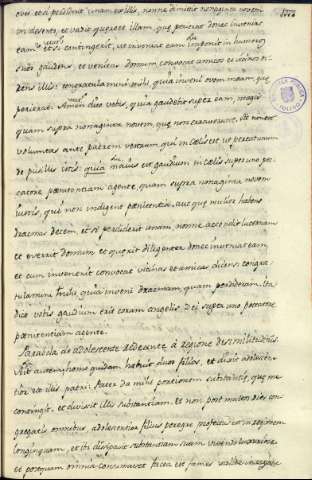 oves. et si perdiderit unam ex illis, nonne dimittit nonaginta novem
in deserto, et vadit quærere illam, quæ perierat donec inveniat
eam, et si contingerit, ut inveniat eam imponit in humeros
suos gaudens, et veniens domum convocat amicos et vicinos di-
cens illis: congratulamini mihi, quia inveni ovem meam, quæ
perierat. Amen dico vobis, quia gaudebit super eam, magis
quam supra nonaginta novem, quæ non erraverunt. sic non est
voluntas ante patrem vestrum qui in cœlis est ut pereat unum
de pusillis istis: quia maius est gaudium in cœlis super uno pec-
catore pœnitentiam agente, quam supra nonaginta novem
iustos, qui non indigent pœnitentia, aut quæ mulier habens
dracmas decem, et si perdiderit unam, nonne accendit lucernam
et everrit domum et quærit diligenter donec inveniat eam
et cum invenerit convocat vicinas et amicas dicens: congra-
tulamini mihi, quia inveni dracmam, quam perdideram. ita
dico vobis gaudium erit coram angelis Dei super uno peccatore
pœnitentiam agente.
Parabola de adolescente redeunte à regione dissimilitudinis.
Ait autem, homo quidam habuit duos filios, et dixit adolescen-
tior ex illis patri: Pater da mihi portionem substantiæ, quæ me
contingit, et divisit illis substantiam. Et non post multos dies con-
gregatis omnibus, adolescentior filius peregre profectus est in regionem
longinquam, et ibi dissipavit substantiam suam vivendo luxuriose
et postquam omnia consumasset facta est fames valida in regione